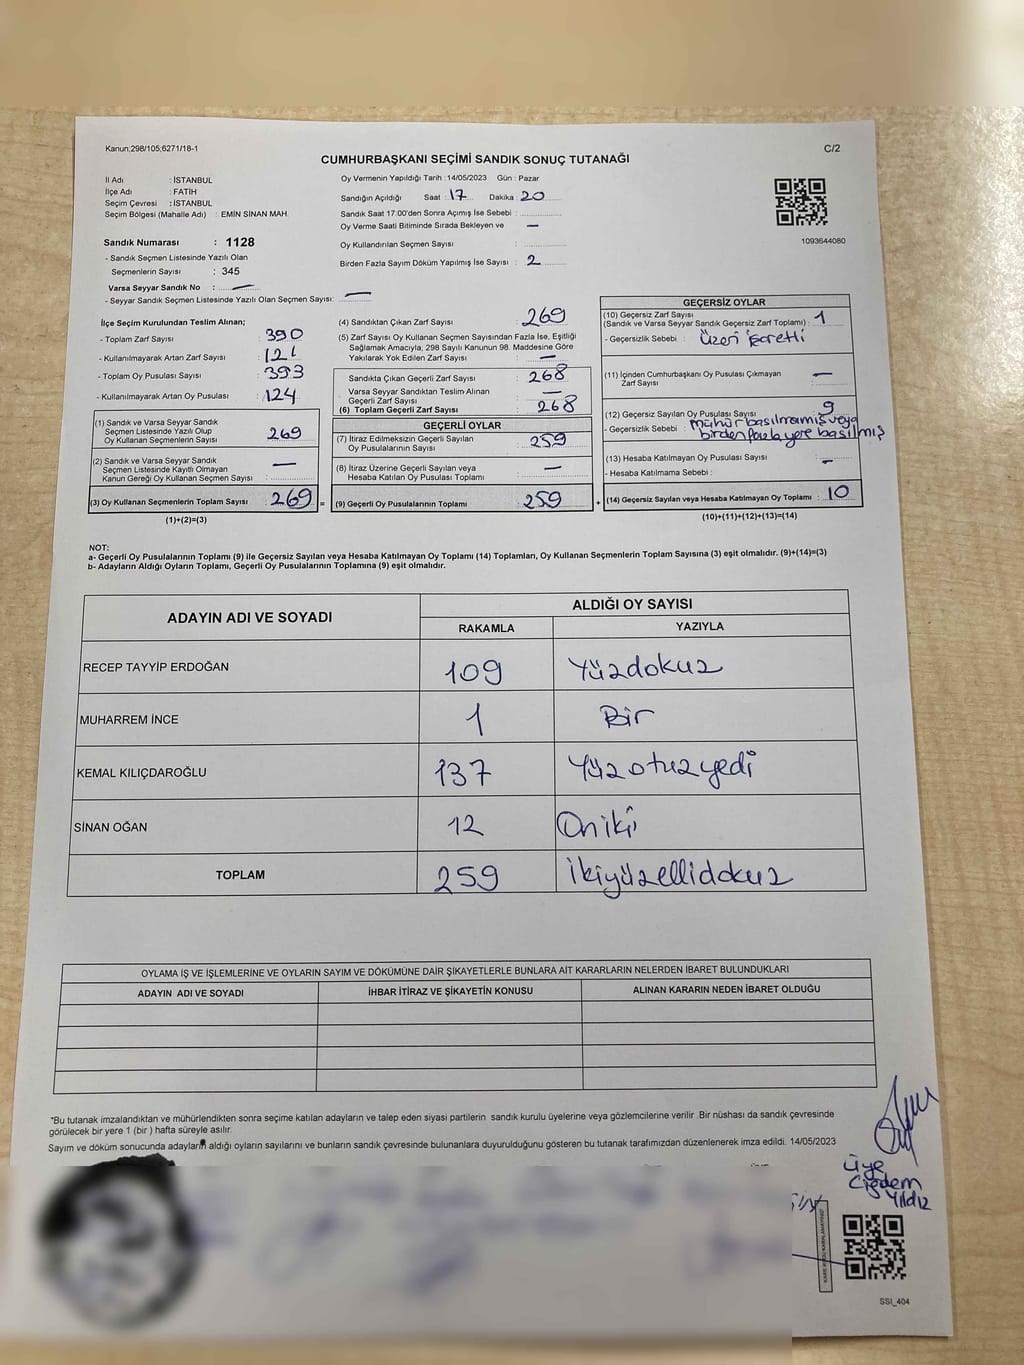 Kanun:298/105;6271/18-1
C/2
CUMHURBAŞKANI SEÇİMİ SANDIK SONUÇ TUTANAĞI
İl Adı : İSTANBUL
İlçe Adı : FATİH
Seçim Çevresi : İSTANBUL
Seçim Bölgesi (Mahalle Adı) : EMİN SİNAN MAH.
Sandık Numarası : 1128
- Sandık Seçmen Listesinde Yazılı Olan
Seçmenlerin Sayısı : 345
Varsa Seyyar Sandık No : —
- Seyyar Sandık Seçmen Listesinde Yazılı Olan Seçmen Sayısı: —
Oy Vermenin Yapıldığı Tarih :14/05/2023 Gün : Pazar
Sandığın Açıldığı Saat : 17 Dakika : 20
Sandık Saat 17:00'den Sonra Açılmış İse Sebebi :
Oy Verme Saati Bitiminde Sırada Bekleyen ve —
Oy Kullandırılan Seçmen Sayısı :
Birden Fazla Sayım Döküm Yapılmış İse Sayısı : 2
1093644080
İlçe Seçim Kurulundan Teslim Alınan;
- Toplam Zarf Sayısı : 390
- Kullanılmayarak Artan Zarf Sayısı : 121
- Toplam Oy Pusulası Sayısı : 393
- Kullanılmayarak Artan Oy Pusulası : 124
(1) Sandık ve Varsa Seyyar Sandık
Seçmen Listesinde Yazılı Olup
Oy Kullanan Seçmenlerin Sayısı : 269
(2) Sandık ve Varsa Seyyar Sandık
Seçmen Listesinde Kayıtlı Olmayan
Kanun Gereği Oy Kullanan Seçmen Sayısı : —
(3) Oy Kullanan Seçmenlerin Toplam Sayısı : 269 =
(1)+(2)=(3)
(4) Sandıktan Çıkan Zarf Sayısı : 269
(5) Zarf Sayısı Oy Kullanan Seçmen Sayısından Fazla İse, Eşitliği
Sağlamak Amacıyla, 298 Sayılı Kanunun 98. Maddesine Göre
Yakılarak Yok Edilen Zarf Sayısı : —
Sandıkta Çıkan Geçerli Zarf Sayısı : 268
Varsa Seyyar Sandıktan Teslim Alınan
Geçerli Zarf Sayısı : —
(6) Toplam Geçerli Zarf Sayısı : 268
GEÇERLİ OYLAR
(7) İtiraz Edilmeksizin Geçerli Sayılan
Oy Pusulalarının Sayısı : 259
(8) İtiraz Üzerine Geçerli Sayılan veya
Hesaba Katılan Oy Pusulası Toplamı : —
(9) Geçerli Oy Pusulalarının Toplamı : 259 +
GEÇERSİZ OYLAR
(10) Geçersiz Zarf Sayısı
(Sandık ve Varsa Seyyar Sandık Geçersiz Zarf Toplamı) : 1
- Geçersizlik Sebebi : Üzeri işaretli
(11) İçinden Cumhurbaşkanı Oy Pusulası Çıkmayan
Zarf Sayısı : —
(12) Geçersiz Sayılan Oy Pusulası Sayısı : 9
- Geçersizlik Sebebi : mühür basılmamış veya
birden fazla yere basılmış
(13) Hesaba Katılmayan Oy Pusulası Sayısı : —
- Hesaba Katılmama Sebebi :
(14) Geçersiz Sayılan veya Hesaba Katılmayan Oy Toplamı : 10
(10)+(11)+(12)+(13)=(14)
NOT:
a- Geçerli Oy Pusulalarının Toplamı (9) ile Geçersiz Sayılan veya Hesaba Katılmayan Oy Toplamı (14) Toplamları, Oy Kullanan Seçmenlerin Toplam Sayısına (3) eşit olmalıdır. (9)+(14)=(3)
b- Adayların Aldığı Oyların Toplamı, Geçerli Oy Pusulalarının Toplamına (9) eşit olmalıdır.
ADAYIN ADI VE SOYADI
ALDIĞI OY SAYISI
RAKAMLA YAZIYLA
RECEP TAYYİP ERDOĞAN 109 Yüzdokuz
MUHARREM İNCE 1 Bir
KEMAL KILIÇDAROĞLU 137 Yüzotuzyedi
SİNAN OĞAN 12 Oniki
TOPLAM 259 İkiyüzellidokuz
OYLAMA İŞ VE İŞLEMLERİNE VE OYLARIN SAYIM VE DÖKÜMÜNE DAİR ŞİKAYETLERLE BUNLARA AİT KARARLARIN NELERDEN İBARET BULUNDUKLARI
ADAYIN ADI VE SOYADI İHBAR İTİRAZ VE ŞİKAYETİN KONUSU ALINAN KARARIN NEDEN İBARET OLDUĞU
*Bu tutanak imzalandıktan ve mühürlendikten sonra seçime katılan adayların ve talep eden siyasi partilerin sandık kurulu üyelerine veya gözlemcilerine verilir .Bir nüshası da sandık çevresinde
görülecek bir yere 1 (bir ) hafta süreyle asılır.
Sayım ve döküm sonucunda adayların aldığı oyların sayılarını ve bunların sandık çevresinde bulunanlara duyurulduğunu gösteren bu tutanak tarafımızdan düzenlenerek imza edildi. 14/05/2023
Üye
Çiğdem
Yıldız
SSI_404